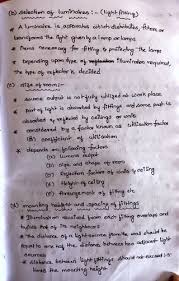 (b) selection of luminaires :- (light fitting)
A luminaire is apparatus which distributes, filters or
transforms the light given by a lamp or lamps
* Items necessary for fitting & protecting the lamps
* Depending upon type of reflection illumination required,
the type of reflector is decided
(c) size of room :-
* source output is not fully utilized at work place
* Part of light is absorbed by fittings and some part is
absorbed & reflected by ceilings or walls
* considered by a factor known as utilisation factor
(or) coefficient of utilization
* depends on following factors
(a) Lumens output
(b) size and shape of room
(c) Reflection factors of walls & ceiling
(d) Height of ceiling
(e) Arrangement of fitting etc.
(d) mounting height and spacing of fittings
* Illumination received from each fitting overlaps and
that of its neighbours
* The distance of light source from the wall should be
equal to one half the distance between two adjacent light
sources
* distance between light fittings should not exceed 1.5
times the mounting height